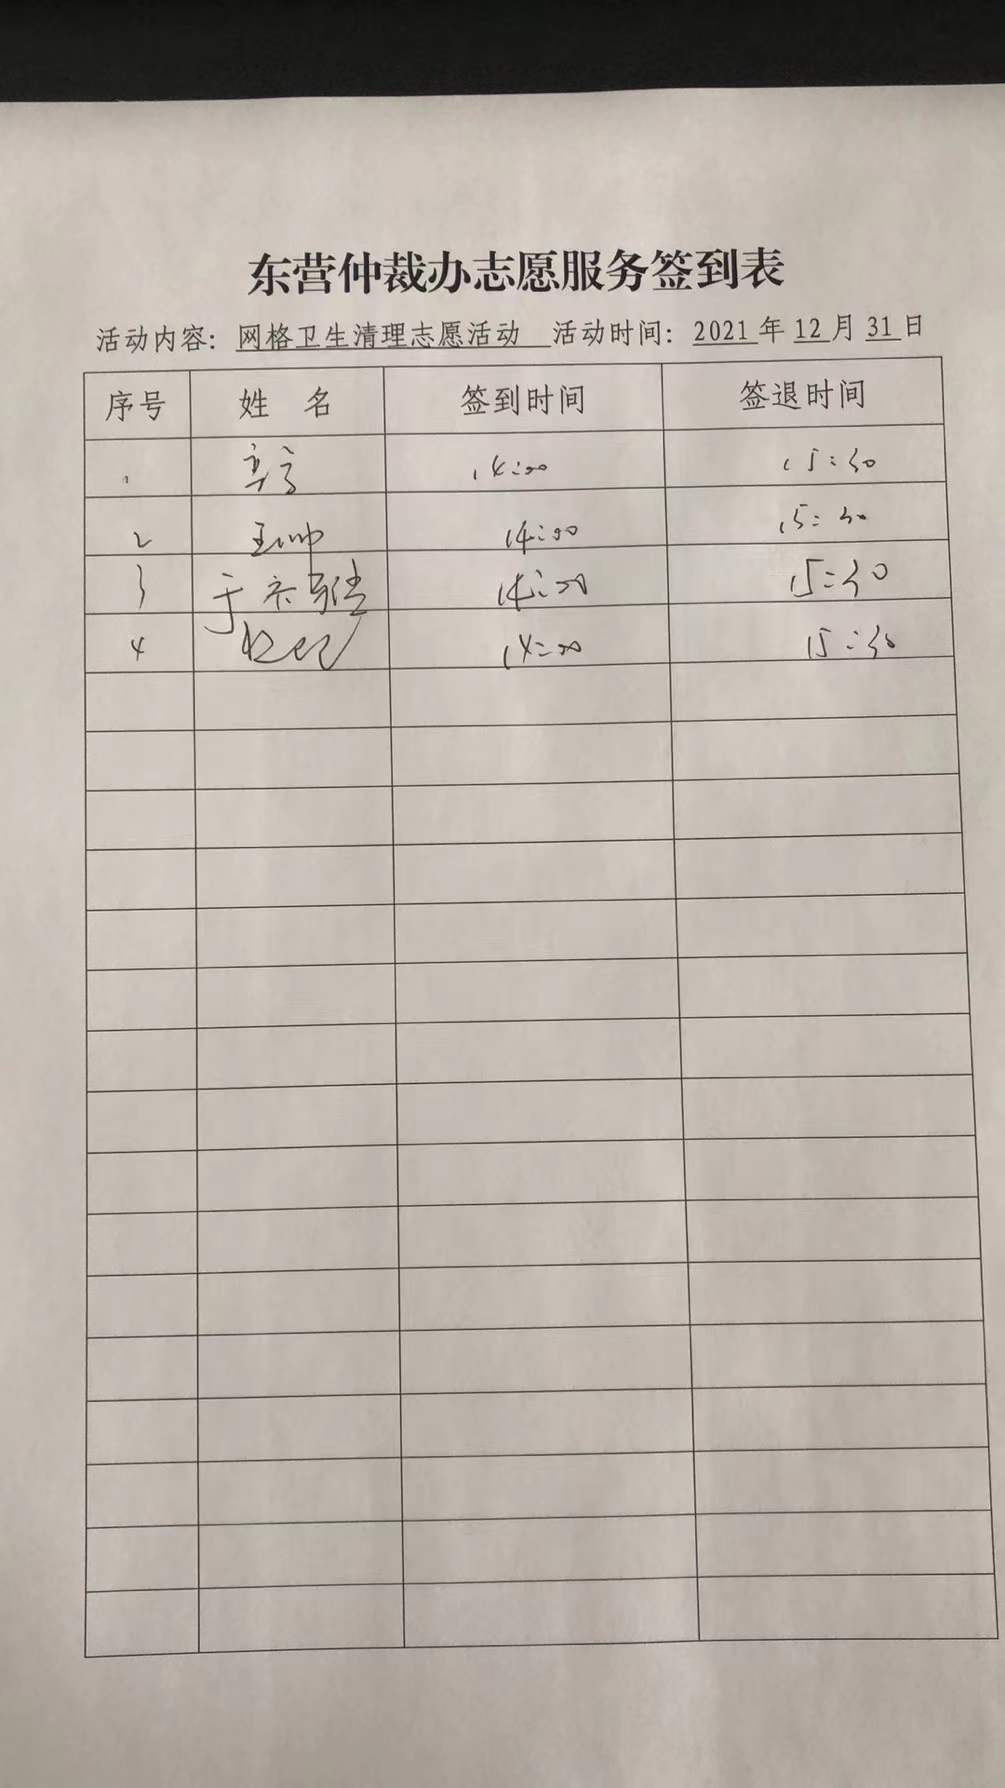 东营仲裁办志愿服务签到表
活动内容：网格卫生清理志愿活动 活动时间：2021年12月31日
序号 姓 名 签到时间 签退时间
1 14:00 15:30
2 王帅 14:00 15:30
3 于 14:00 15:30
4 14:00 15:30